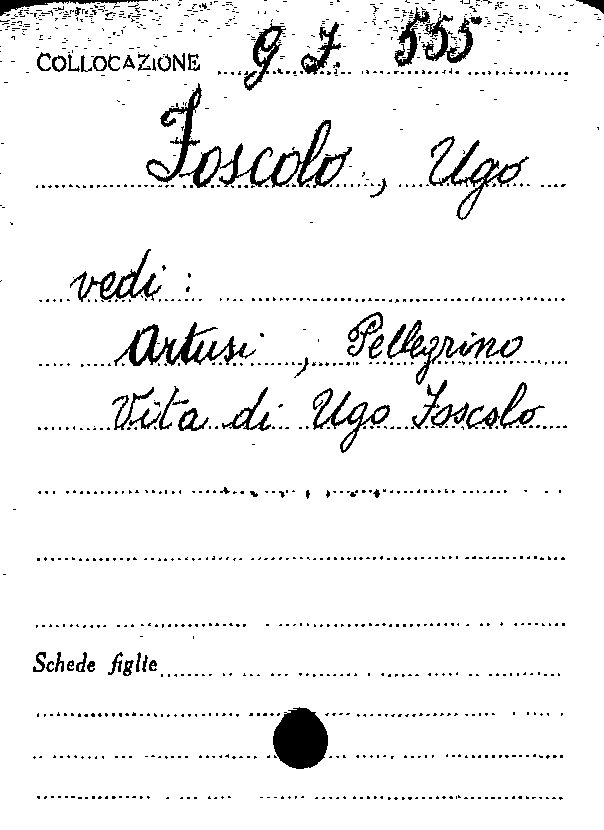 COLLOCAZIONE G. F. 555
Foscolo, Ugo
vedi :
Artusi, Pellegrino
Vita di Ugo Foscolo
Schede figlie